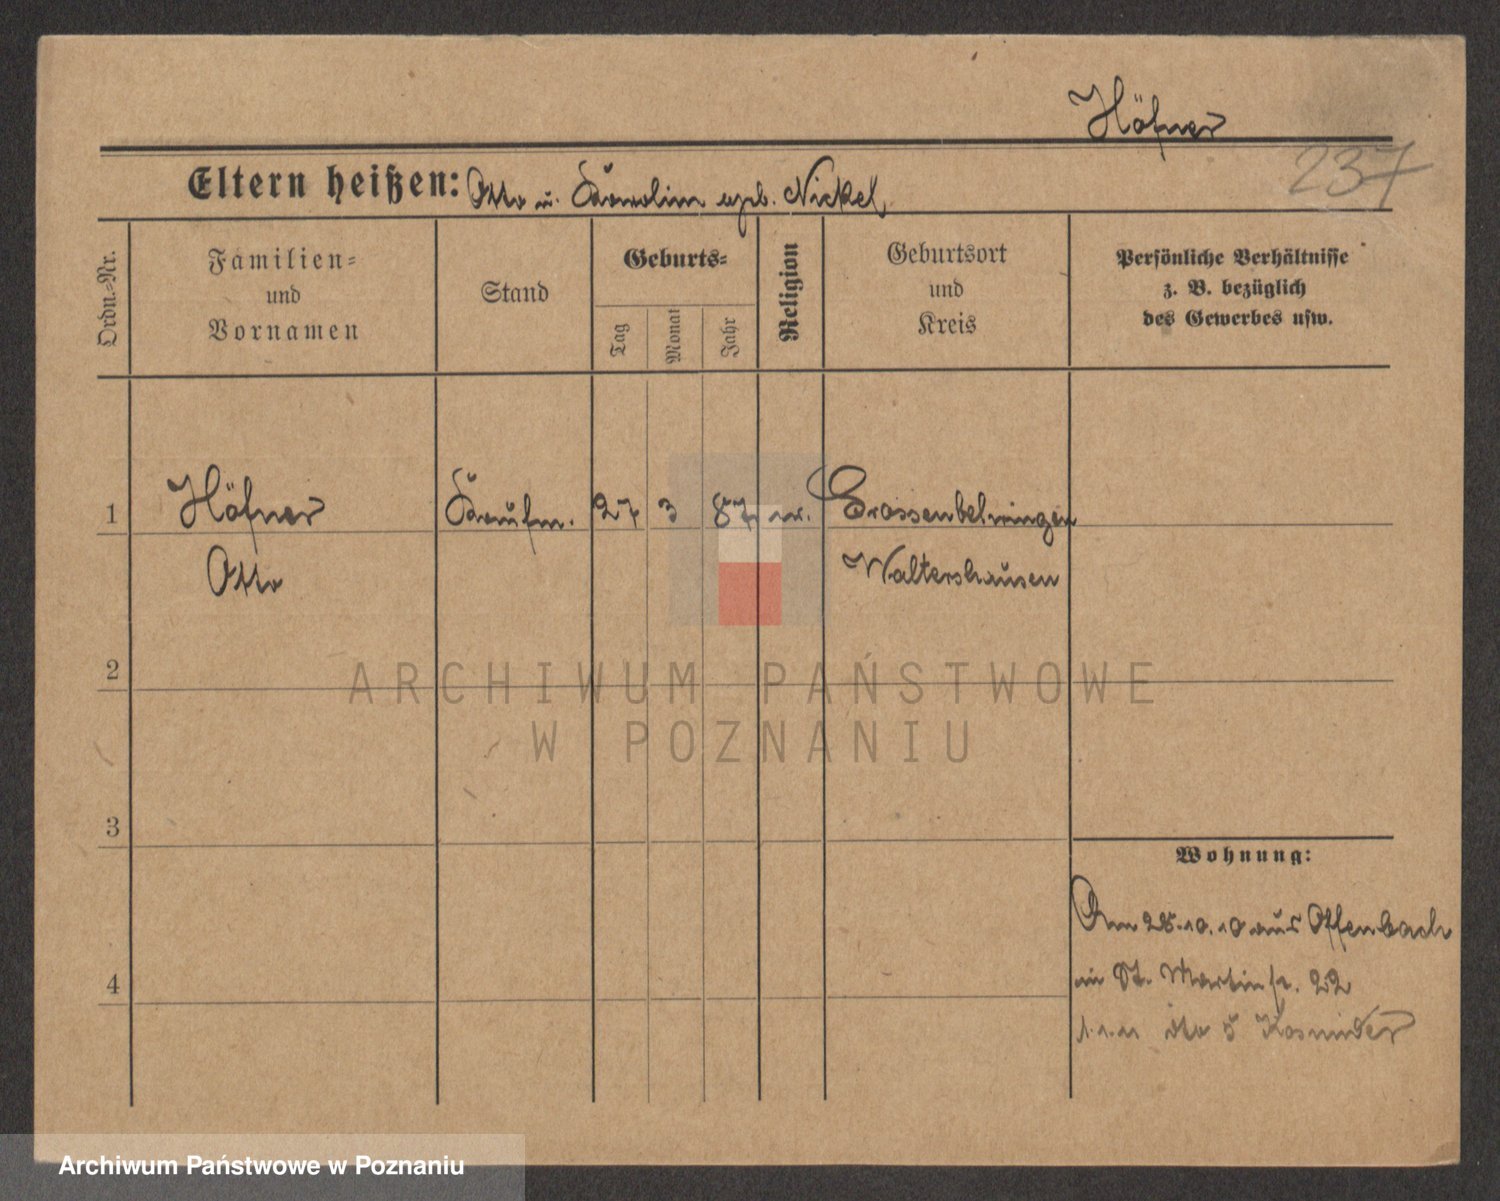 Höfner
237
Eltern heißen: Otto u. Karolin geb. Nickel
Ordn.-Nr.
Familien-
und
Vornamen
Stand
Geburts-
Tag
Monat
Jahr
Religion
Geburtsort
und
Kreis
Persönliche Verhältnisse
z. B. bezüglich
des Gewerbes usw.
1 Höfner Kaufm. 27 3 87 Grossenbehringen
Otto Waltershausen
2
ARCHIWUM PAŃSTWOWE
W POZNANIU
3
Wohnung:
Am 28.10.10 aus Offenbach
in St. Martinstr. 22
4
1.1.11 dto 5
Archiwum Państwowe w Poznaniu